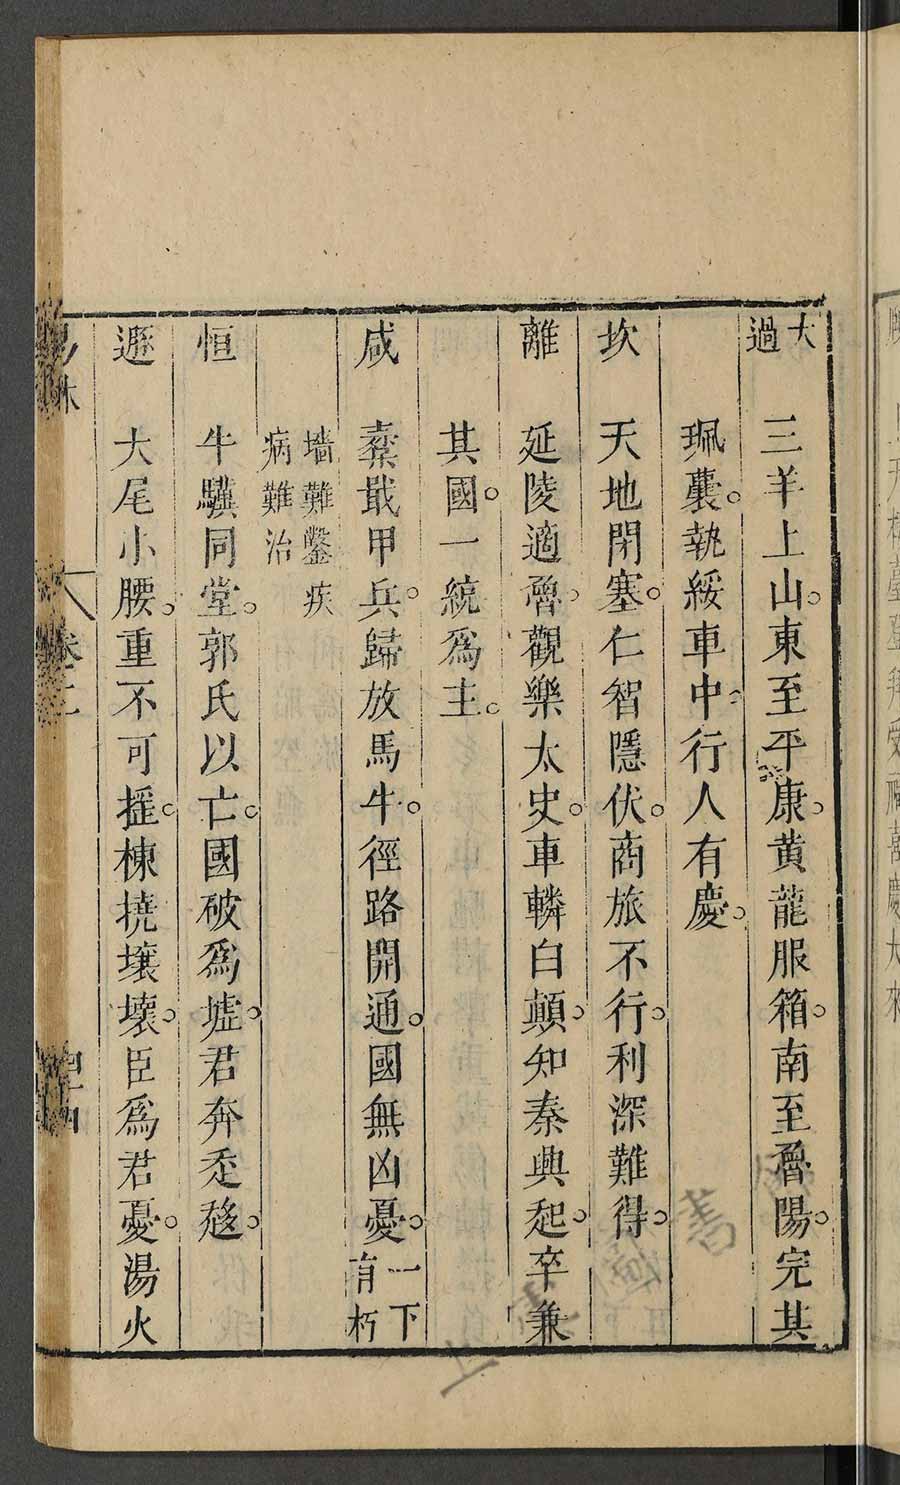 大過 三羊上山。東至平康。黃龍服箱。南至魯陽。完其
珮囊。執綏車中。行人有慶。
坎 天地閉塞。仁智隱伏。商旅不行。利深難得。
離 延陵適魯。觀樂太史。車轔白顛。知秦興起。卒兼
其國。一統爲主。
咸 櫜戢甲兵。歸放馬牛。徑路開通。國無凶憂。一下有朽
墻難鑿疾病難治
恒 牛驥同堂。郭氏以亡。國破爲墟。君奔走
遯 大尾小腰。重不可摇。棟撓壞。臣爲君憂。湯火
易林
卷三
四十四